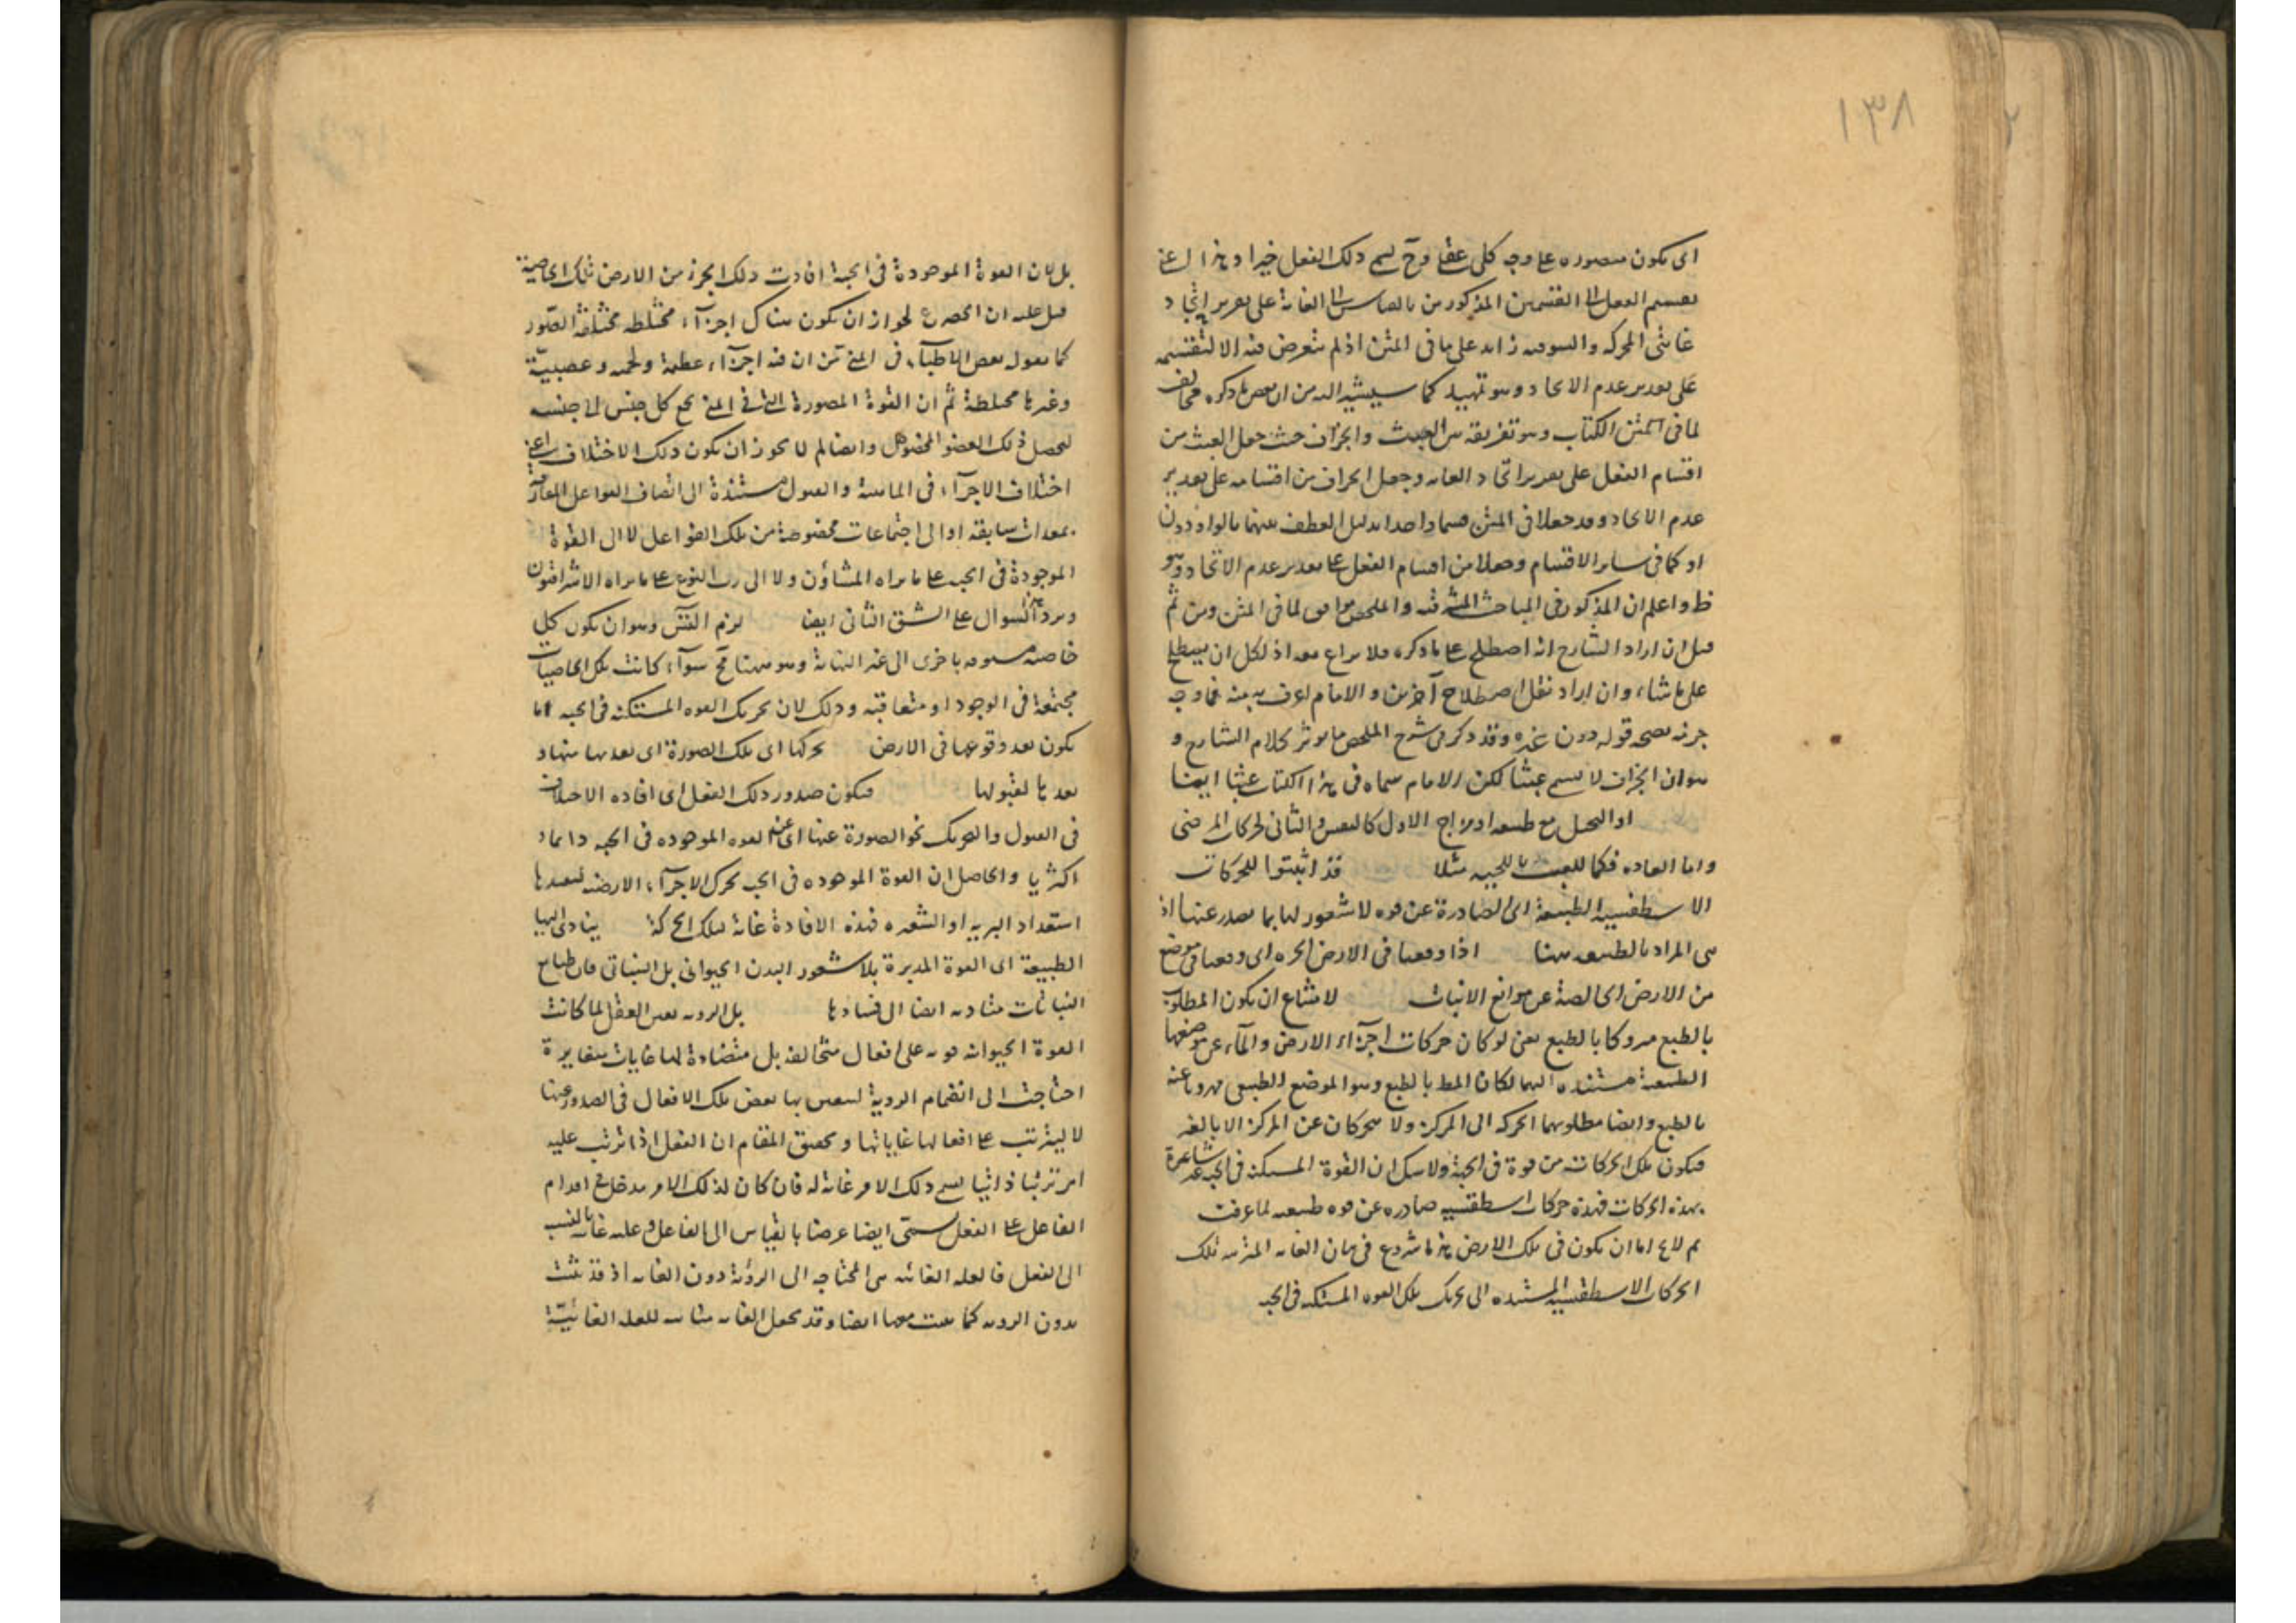 ١٣٨
اى يكون متصوره على وجه كلى عقلى وح يسمى ذلك الفعل خيرا وهذا اعنى
تقسيم الفعل الى القسمين المذكورين بالقياس الى الغاية على تقدير اتحاد
غايتى المحركة والشوقية زايد على ما فى المتن اذ لم يتعرض فيه الا لتقسيمه
على تقدير عدم الاتحاد وهو تمهيد كما سيشير اليه من ان بعض ما ذكره مخالف
لما فى متن الكتاب وهو تفريقه بين العبث والجزاف حيث جعل العبث من
اقسام الفعل على تقدير اتحاد الغاية وجعل الجزاف من اقسامه على تقدير
عدم الاتحاد وقد جعلا فى المتن قسما واحدا بدليل العطف بينهما بالواو دون
او كما فى ساير الاقسام وجعلا من اقسام الفعل على تقدير عدم الاتحاد وهو
ظ واعلم ان المذكور فى المباحث المشرقية والملخص موافق لما فى المتن ومن ثم
قيل ان اراد الشارح انه اصطلح على ما ذكره فلا نزاع معه اذ لكل ان يصطلح
على ما شاء وان اراد نقل اصطلاح آخرين والامام اعرف به منه فما وجه
جزمه بصحة قوله دون غيره وقد ذكر فى شرح الملخص ما يؤثر كلام الشارح و
هو ان الجزاف لا يسمى عبثا لكن الامام سماه فى هذا الكتاب عبثا ايضا
او التخيل مع طبيعة او مزاج الاول كالتنفس والثانى لحركات المرضى
واما العادة فكما للعبث باللحية مثلا قد اثبتوا للحركات
الاسطقسية الطبيعة اى الصادرة عن قوة لا شعور لها بما يصدر عنها اذ
هى المراد بالطبيعة ههنا اذا وقعنا فى الارض الحرة اى وقعنا فى موضع
من الارض الخالصة عن موانع الانبات لامتناع ان يكون المطلوب
بالطبع متروكا بالطبع يعنى لو كان حركات اجزاء الارض والماء عن موضعها
الطبيعية مستندة اليهما لكان المط بالطبع وهو الموضع الطبيعى مهروبا عنه
بالطبع وايضا مطلوبهما الحركة الى المركز ولا يتحركان عن المركز الا بالقسر
فيكون تلك الحركات من قوة فى الحبة ولا شك ان القوة المستكنة فى الحبة غير شاعرة
بهذه الحركات فهذه حركات اسطقسية صادرة عن قوة طبيعية لما عرفت
ثم لا يخ اما ان يكون فى تلك الارض هذا شروع فى بيان الغاية المترتبة تلك
الحركات الاسطقسية المستندة الى تحريك تلك القوة المستكنة فى الحبة
بل لان القوة الموجودة فى الحبة افادت ذلك الجزء من الارض تلك الخاصية
قيل عليه ان الحصر ع لجواز ان يكون هناك اجزاء مختلطة مختلفة الصور
كما يقول بعض الاطباء فى المنى من ان فيه اجزاء عظمية ولحمية وعصبية
وغيرها مختلطة ثم ان القوة المصورة التى فى المنى يجمع كل جنس الى جنسه
ليحصل ذلك العضو المخصوص وايضا لم لا يجوز ان يكون ذلك الاختلاف اعنى
اختلاف الاجزاء فى الماهية والقبول مستندة الى اتصاف القوابل المقارنة
بمعدات سابقة او الى اجتماعات مخصوصة من تلك الفواعل لا الى القوة
الموجودة فى الحبة على ما يراه المشاؤن ولا الى رب النوع على ما يراه الاشراقيون
ويرد هذا السوال على الشق الثانى ايضا لزم التس وهو ان يكون كل
خاصية مسبوقة باخرى الى غير النهاية وهو ههنا مح سواء كانت تلك الخاصيات
مجتمعة فى الوجود او متعاقبة وذلك لان تحريك القوة المستكنة فى الحبة انما
يكون بعد وقوعها فى الارض تحركها اى تلك الصورة اى بعدها منها و
بعدها لقبولها فيكون صدور ذلك الفعل اى افادة الاختلاف
فى القبول والتحريك نحو الصورة عنها اى عن القوة الموجودة فى الحبة دايما و
اكثريا والحاصل ان القوة الموجودة فى الحب تحرك الاجزاء الارضية ليفيدها
استعداد البرية او الشعيرة فهذه الافادة غاية لتلك الحركة يتادى اليها
الطبيعة اى القوة المدبرة بلا شعور البدن الحيوانى بل النباتى فان طبايع
النباتات متادية ايضا الى فسادها بل الروية تعين الفعل لما كانت
القوة الحيوانية قوية على افعال متخالفة بل متضادة لها غايات متغايرة
احتاجت الى انضمام الروية ليتعين بها بعض تلك الافعال فى الصدور عنها
لا ليترتب على افعالها غاياتها وتحقيق المقام ان الفعل اذا ترتب عليه
امر ترتبا ذاتيا يسمى ذلك الامر غاية له فان كان لذلك الامر مدخل فى اقدام
الفاعل على الفعل سمى ايضا غرضا بالقياس الى الفاعل وعلة غائية بالنسبة
الى الفعل فالعلة الغائية هى المحتاجة الى الروية دون الغاية اذ قد تثبت
بدون الروية كما تثبت معها ايضا وقد يجعل الغاية مباينة للعلة الغائية